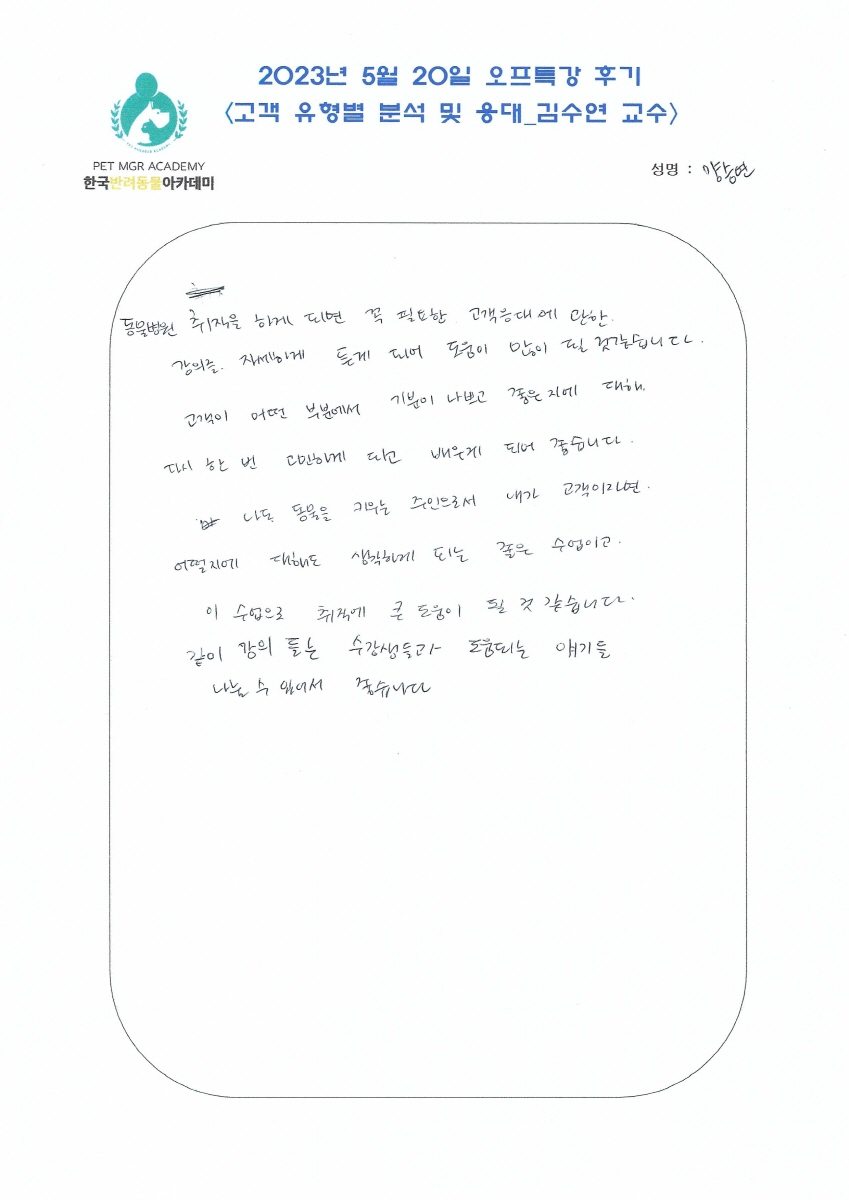 2023년 5월 20일 오프특강 후기
<고객 유형별 분석 및 응대_김수연 교수>
PET MGR ACADEMY
한국반려동물아카데미
성명 :
동물병원 취직을 하게 되면 꼭 필요한 고객응대에 관한.
강의를. 자세하게 듣게 되어 도움이 많이 될 것같습니다.
고객이 어떤 부분에서 기분이 나쁘고 좋은지에 대해.
다시 한 번 고민하게 되고 배우게 되어 좋습니다.
나도 동물을 키우는 주인으로서 내가 고객이라면.
어떨지에 대해도 생각하게 되는 좋은 수업이고.
이 수업으로 취직에 큰 도움이 될 것 같습니다.
같이 강의 듣는 수강생들과 도움되는 얘기들
나눌 수 있어서 좋습니다